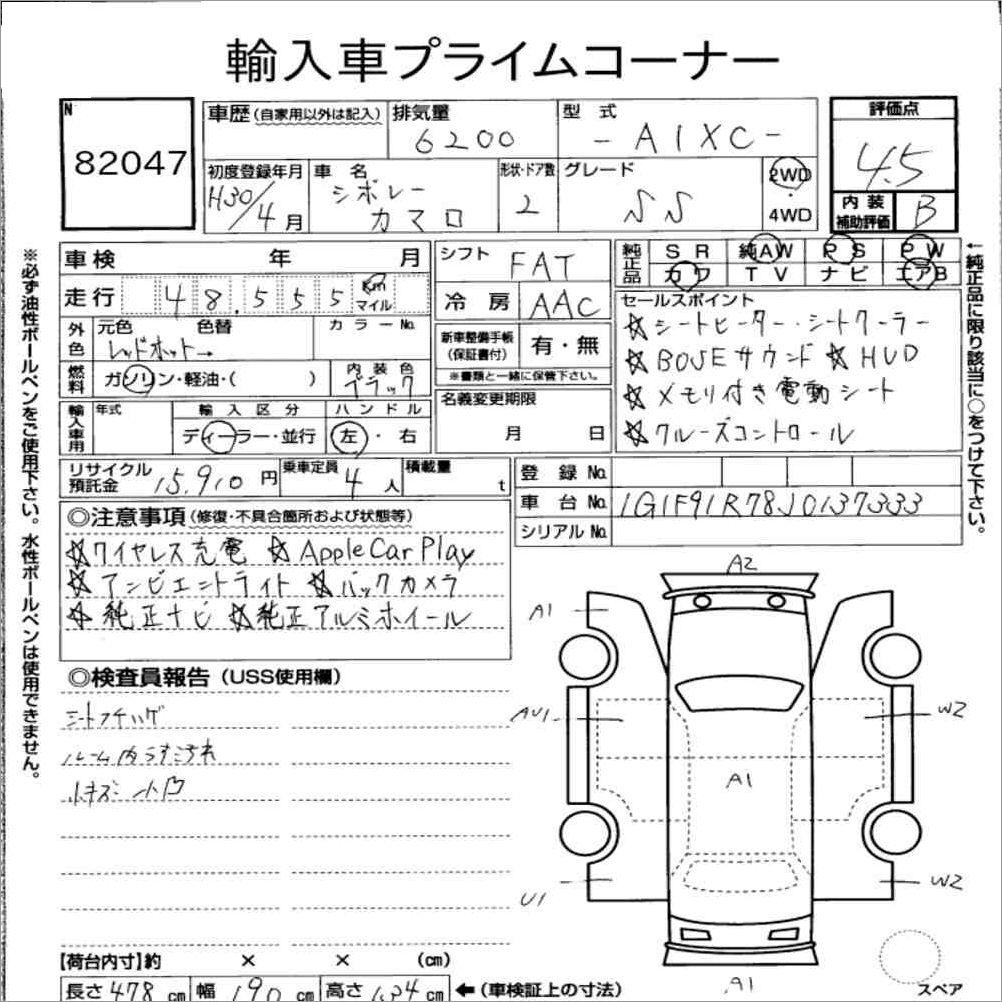 輸入車プライムコーナー
N
82047
車歴 (自家用以外は記入)
排気量
6200
型式
-A1XC-
評価点
4.5
初度登録年月
H30/4月
車名
シボレー
カマロ
形状・ドア数
2
グレード
SS
2WD
・
4WD
内装
補助評価
B
車検 年 月
シフト
FAT
純正品
SR 純AW PS PW
カワ TV ナビ エアB
走行 48,555 Km
マイル
冷房
AAC
セールスポイント
☆シートヒーター・シートクーラー
☆BOSEサウンド ☆HUD
☆メモリ付き電動シート
☆クルーズコントロール
外色
元色 色替
レッドホット→
カラーNo.
新車整備手帳
(保証書付)
有・無
※書類と一緒に保管下さい。
燃料
ガソリン・軽油・( )
内装色
ブラック
名義変更期限
月 日
輸入車用
年式
輸入区分
ディーラー・並行
ハンドル
左・右
リサイクル
預託金
15,910円
乗車定員
4人
積載量
t
登録No.
車台No.
1G1F91R78J0137333
シリアルNo.
◎注意事項 (修復・不具合箇所および状態等)
☆ワイヤレス充電 ☆AppleCarPlay
☆アンビエントライト ☆バックカメラ
☆純正ナビ ☆純正アルミホイール
◎検査員報告 (USS使用欄)
シートスチヂレ
ルーム内うすこれ
小キズ 小凹
A2
A1
AU1
W2
A1
U1
W2
A1
スペア
【荷台内寸】約 × × (cm)
長さ 478 cm 幅 190 cm 高さ 134 cm ←(車検証上の寸法)
※必ず油性ボールペンをご使用下さい。水性ボールペンは使用できません。
←純正品に限り該当に○をつけて下さい。